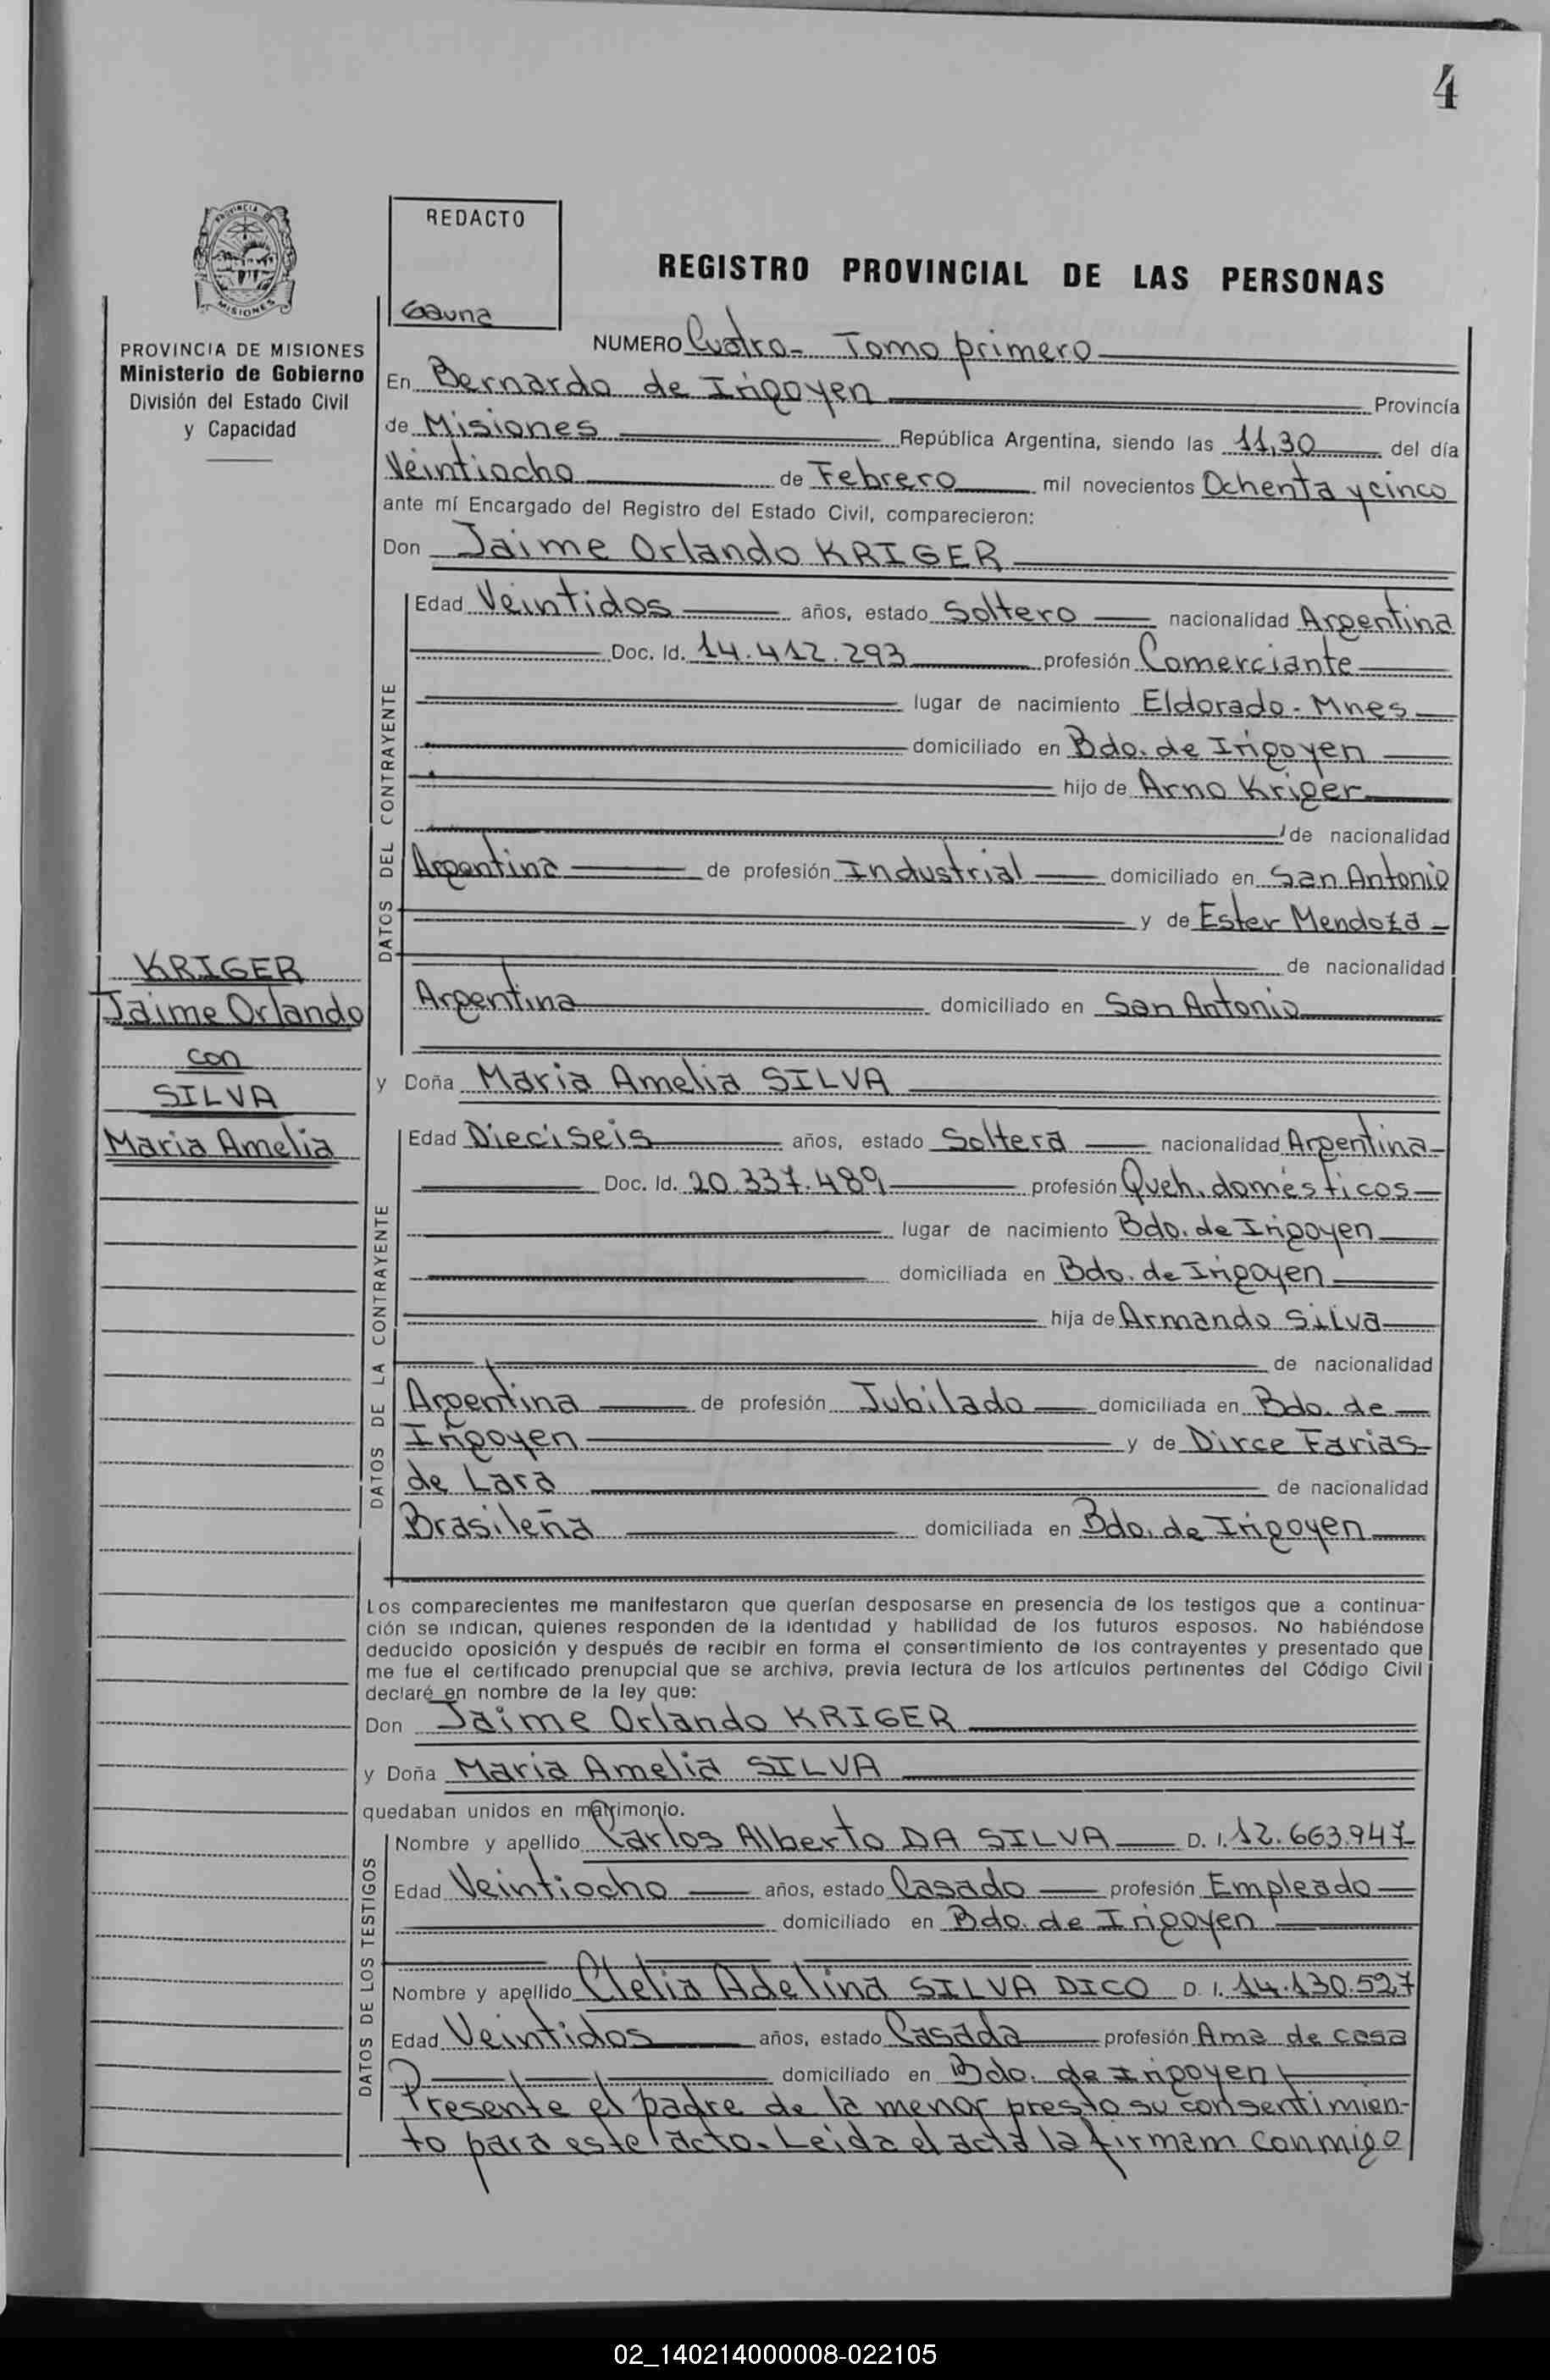 4
PROVINCIA DE
MISIONES
REDACTO
Gauna
REGISTRO PROVINCIAL DE LAS PERSONAS
PROVINCIA DE MISIONES
Ministerio de Gobierno
División del Estado Civil
y Capacidad
NUMERO Cuatro- Tomo primero
En Bernardo de Irigoyen Provincia
de Misiones República Argentina, siendo las 11,30 del día
Veintiocho de Febrero mil novecientos Ochenta y cinco
ante mí Encargado del Registro del Estado Civil, comparecieron:
Don Jaime Orlando KRIGER
DATOS DEL CONTRAYENTE
Edad Veintidos años, estado Soltero nacionalidad Argentina
Doc. Id. 14.412.293 profesión Comerciante
lugar de nacimiento Eldorado - Mnes
domiciliado en Bdo. de Irigoyen
hijo de Arno Kriger
de nacionalidad
Argentina de profesión Industrial domiciliado en San Antonio
y de Ester Mendoza
de nacionalidad
Argentina domiciliado en San Antonio
KRIGER
Jaime Orlando
con
SILVA
Maria Amelia
y Doña Maria Amelia SILVA
DATOS DE LA CONTRAYENTE
Edad Dieciseis años, estado Soltera nacionalidad Argentina
Doc. Id. 20.337.489 profesión Queh. domésticos
lugar de nacimiento Bdo. de Irigoyen
domiciliada en Bdo. de Irigoyen
hija de Armando Silva
de nacionalidad
Argentina de profesión Jubilado domiciliada en Bdo. de
Irigoyen y de Dirce Farias
de Lara de nacionalidad
Brasileña domiciliada en Bdo. de Irigoyen
Los comparecientes me manifestaron que querían desposarse en presencia de los testigos que a continua-
ción se indican, quienes responden de la identidad y habilidad de los futuros esposos. No habiéndose
deducido oposición y después de recibir en forma el consentimiento de los contrayentes y presentado que
me fue el certificado prenupcial que se archiva, previa lectura de los artículos pertinentes del Código Civil
declaré en nombre de la ley que:
Don Jaime Orlando KRIGER
y Doña Maria Amelia SILVA
quedaban unidos en matrimonio.
DATOS DE LOS TESTIGOS
Nombre y apellido Carlos Alberto DA SILVA D. I. 12.663.947
Edad Veintiocho años, estado Casado profesión Empleado
domiciliado en Bdo. de Irigoyen
Nombre y apellido Clelia Adelina SILVA DICO D. I. 14.130.527
Edad Veintidos años, estado Casada profesión Ama de casa
domiciliado en Bdo. de Irigoyen
Presente el padre de la menor presta su consentimien-
to para este acto. Leida el acta la firmam conmigo
02_140214000008-022105